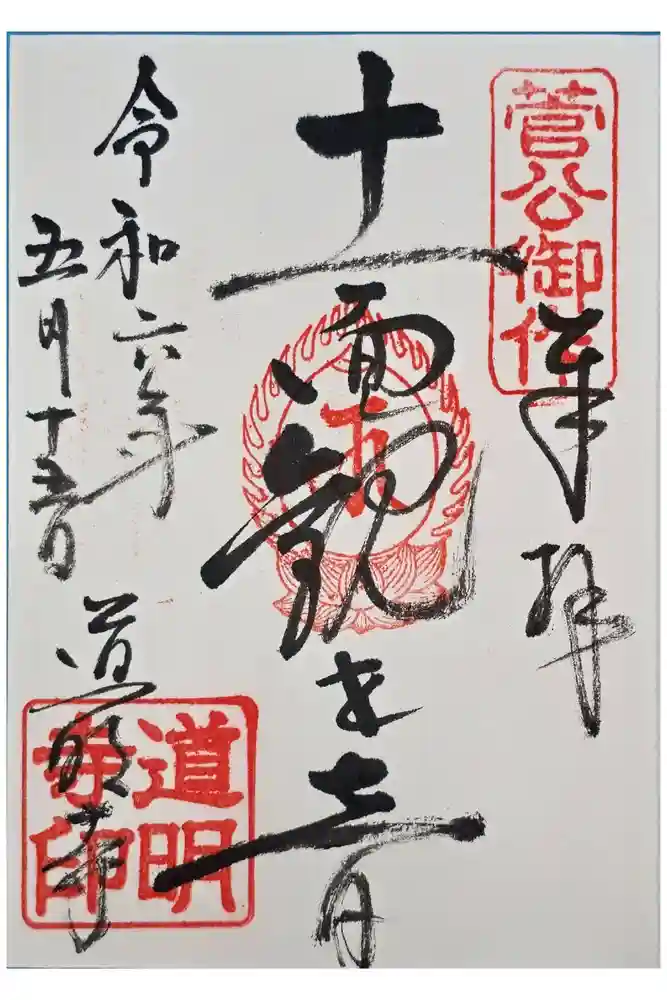 菅公御作
奉拝
十一面観世音
令和六年
五月十五日
道明寺
道明
寺印